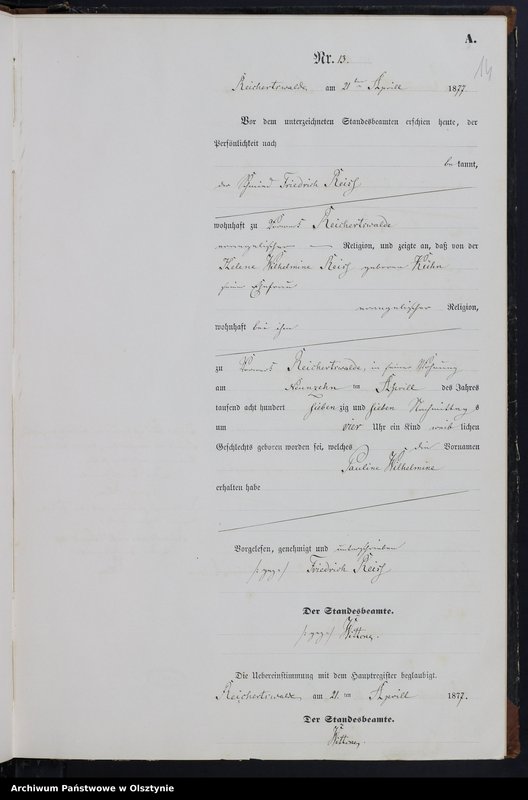 A.
14
Nr. 13.
Reichertswalde, am 21ten Aprill 1877.
Vor dem unterzeichneten Standesbeamten erschien heute, der
Persönlichkeit nach
bekannt,
der Schmied Friedrich Reiß
wohnhaft zu Vorwerk Reichertswalde
evangelischer Religion, und zeigte an, daß von der
Helene Wilhelmine Reiß geborene Kühn
seine Ehefrau
evangelischer Religion,
wohnhaft bei ihm
zu Vorwerk Reichertswalde, in seiner Wohnung
am Neunzehn ten Aprill des Jahres
tausend acht hundert sieben zig und sieben Nachmittags
um vier Uhr ein Kind weiblichen
Geschlechts geboren worden sei, welches die Vornamen
Pauline Wilhelmine
erhalten habe
Vorgelesen, genehmigt und unterschrieben
/: gez :/ Friedrich Reiß
Der Standesbeamte.
/: gez :/
Die Uebereinstimmung mit dem Hauptregister beglaubigt.
Reichertswalde, am 21. ten Aprill 1877.
Der Standesbeamte.
Archiwum Państwowe w Olsztynie